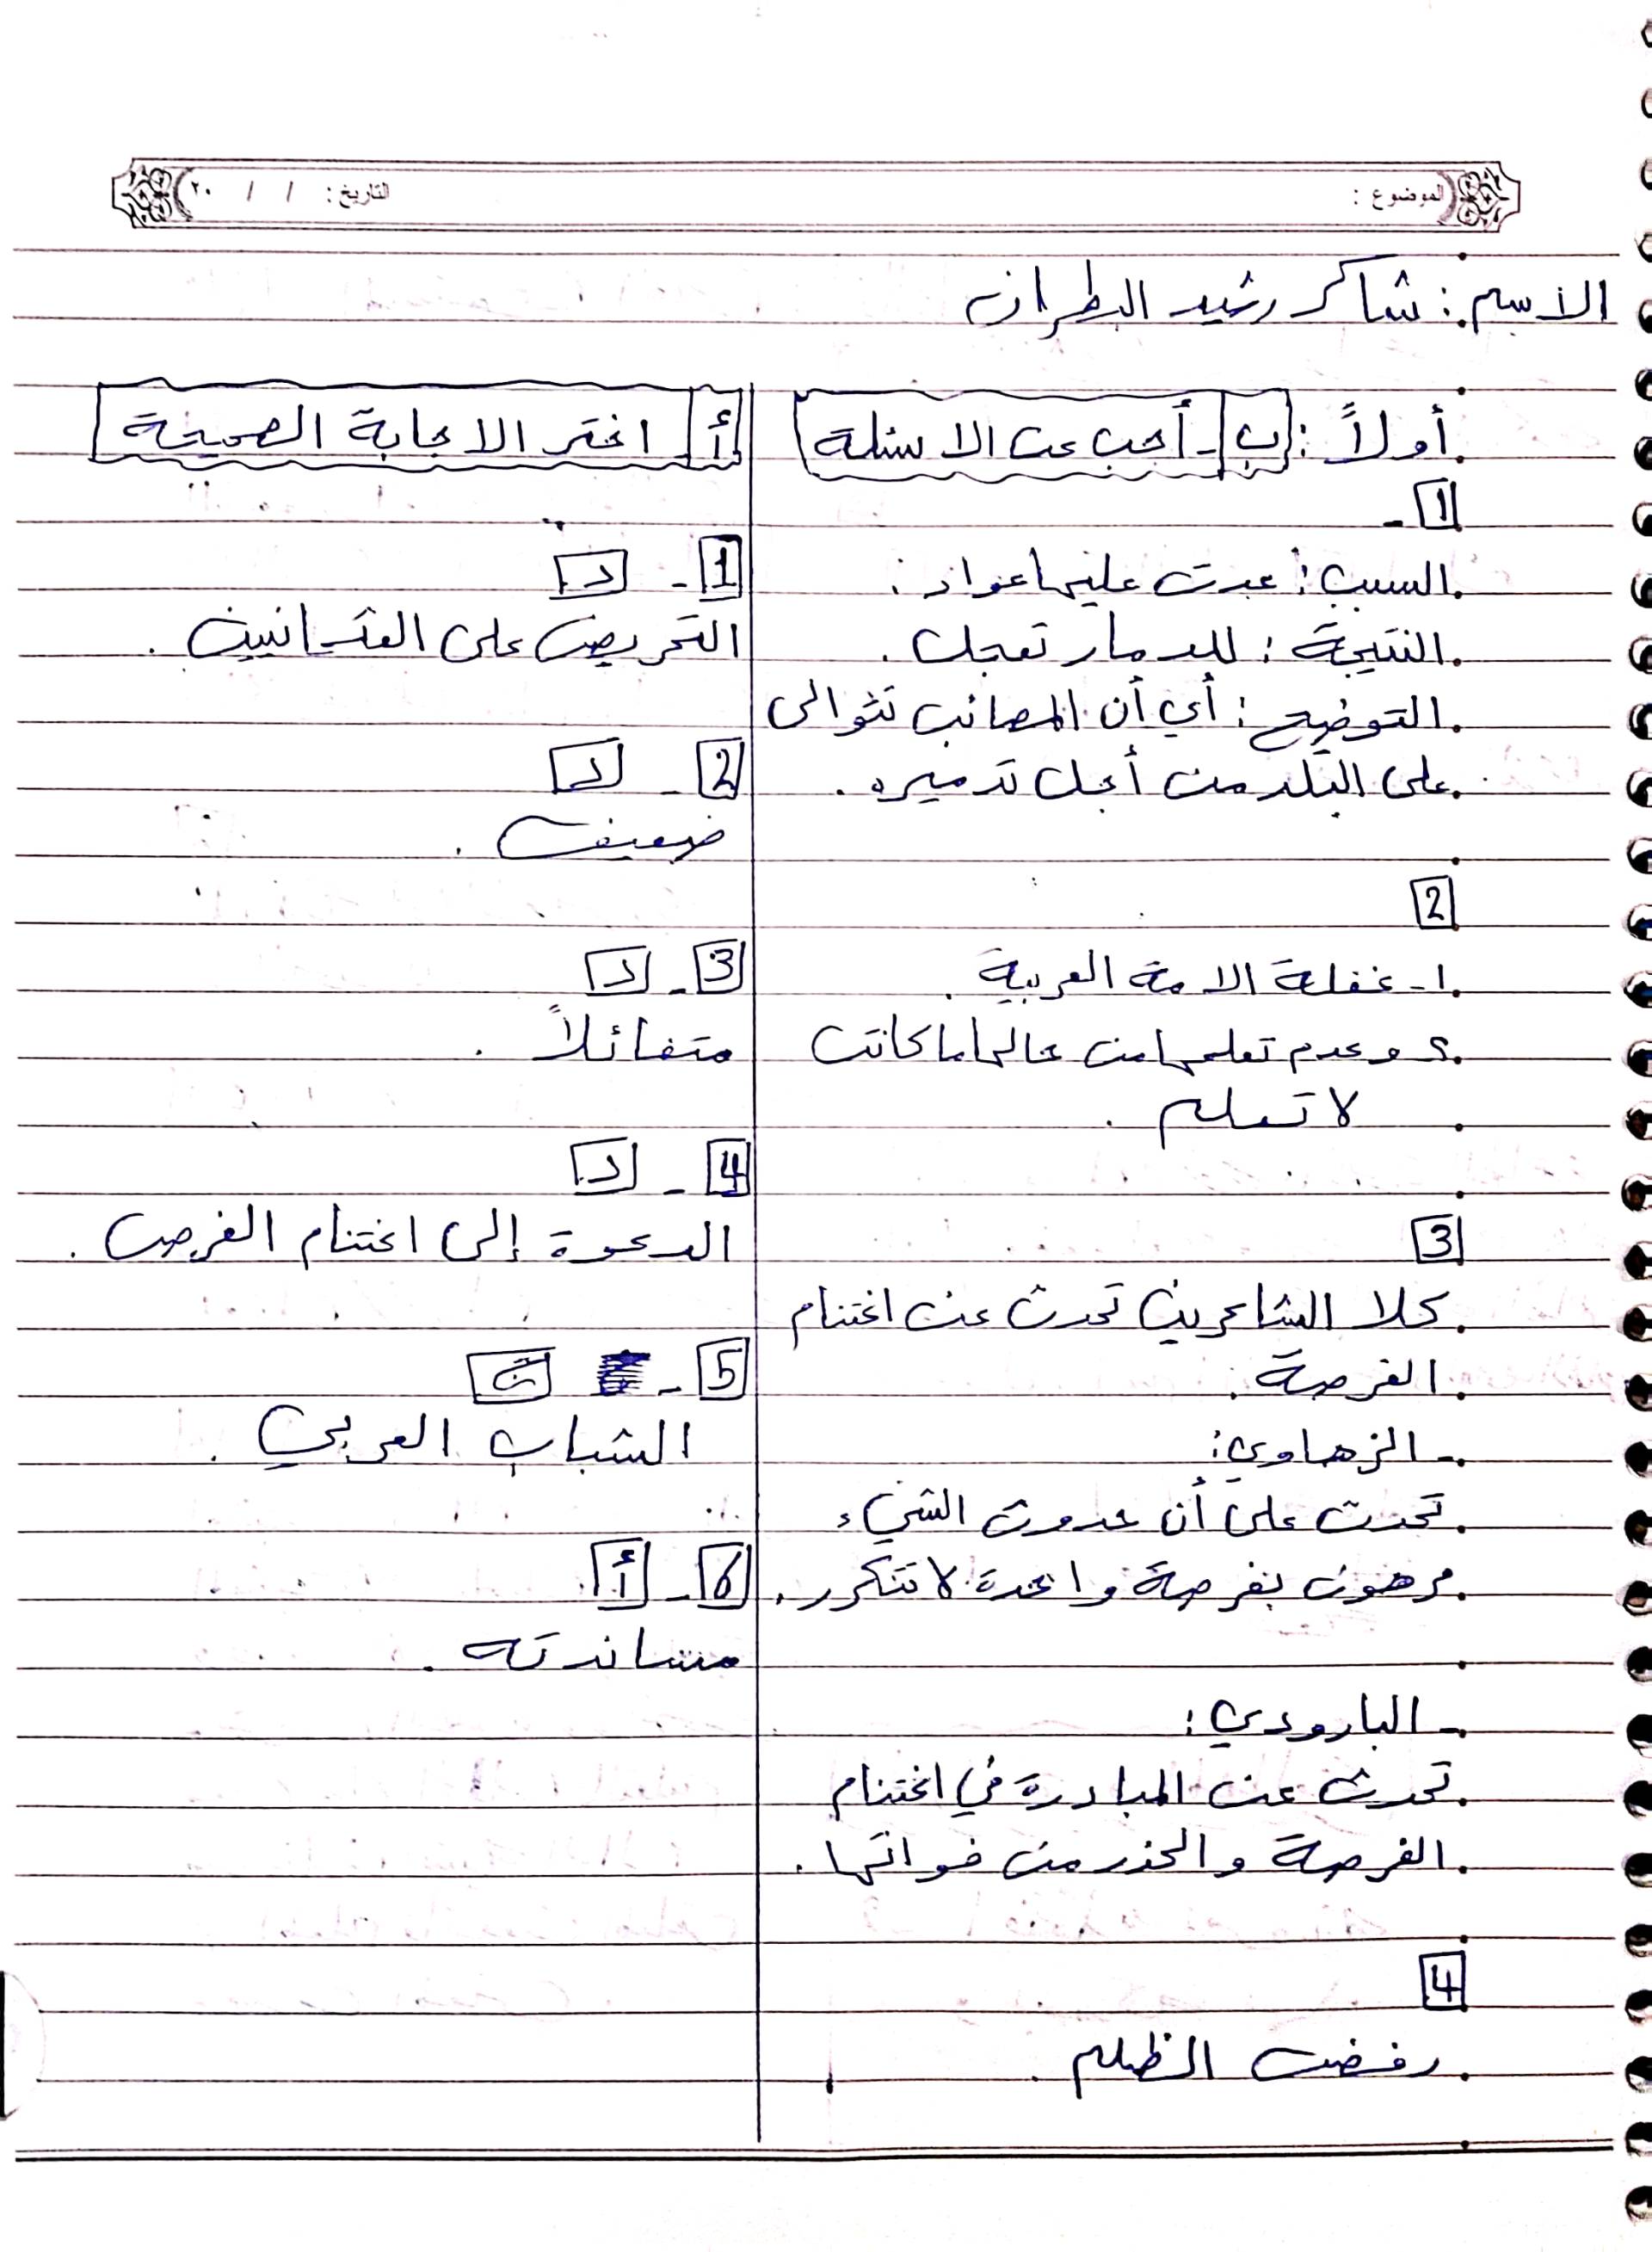 الموضوع :
التاريخ : / / ٢٠
الاسم : شاكر رشيد البطران
أولاً : ب - أجب عن الاسئلة
1 -
السبب : عدت عليها عواد .
النتيجة : للدمار تعجل .
التوضيح : أي أن المصائب تتوالى
على البلد من أجل تدميره .
2
١- غفلة الامة العربية .
٢ وعدم تعلمها من حالها ما كانت
لا تعلم .
3
كلا الشاعرين تحدث عن اغتنام
الفرصة .
- الزهاوي :
تحدث على أن حدوث الشيء
مرهون بفرصة واحدة لا تتكرر .
- البارودي :
تحدث عن المبادرة في اغتنام
الفرصة والحذر من فواتها .
4
رفض الظلم .
أ - اختر الاجابة الصحيحة
1 - د
التحريض على العثمانيين .
2 - د
ضعيف .
3 - د
متفائلاً .
4 - د
الدعوة إلى اغتنام الفرص .
5 - ج
الشباب العربي .
6 - أ
مساندته .